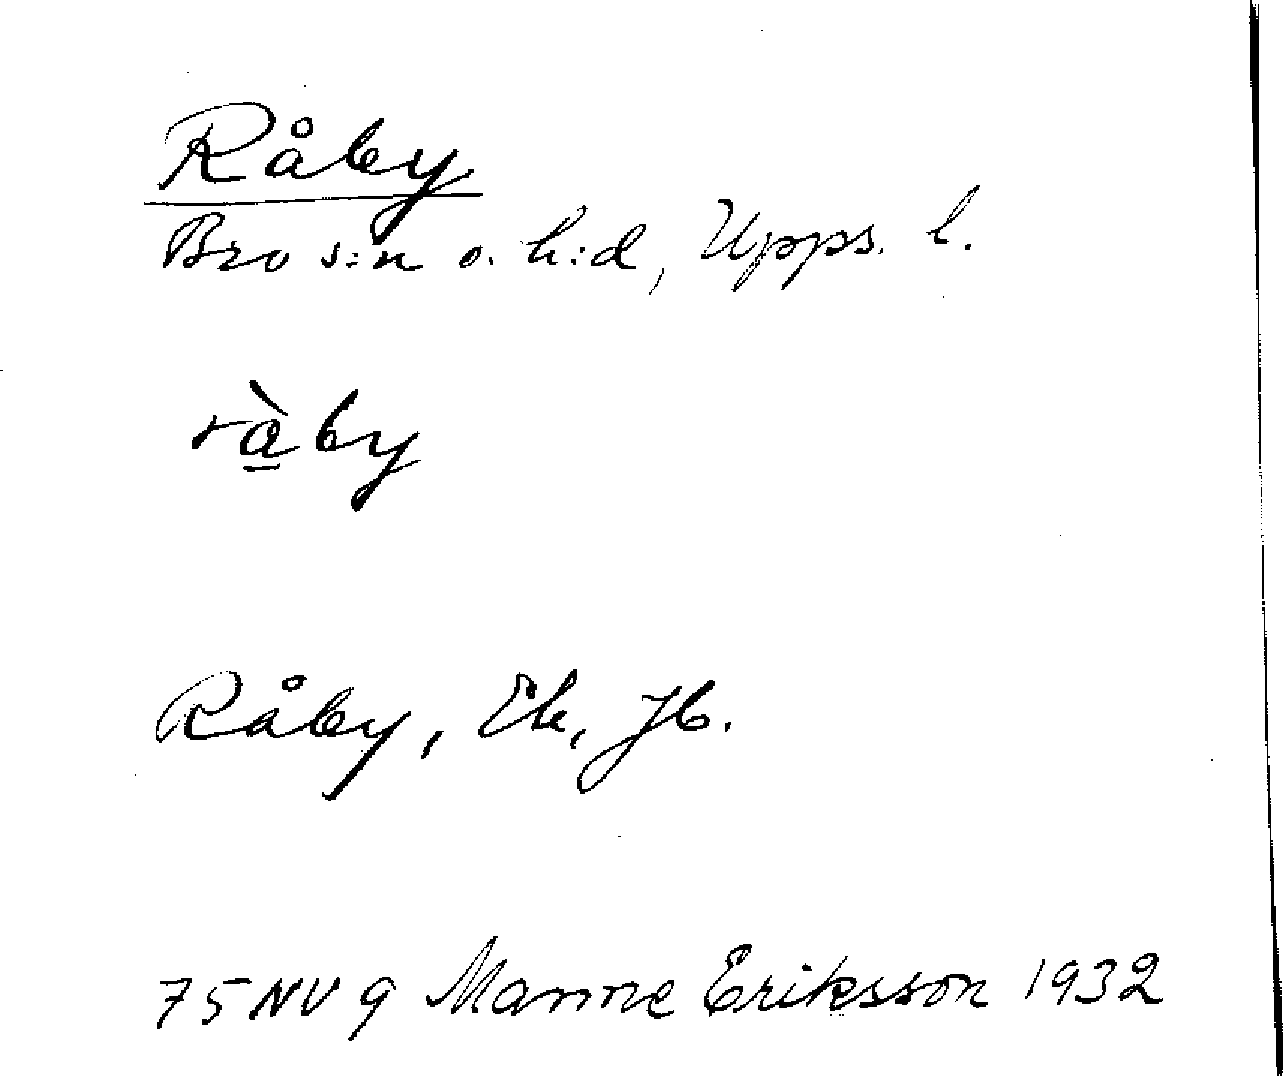 Råby
Bro s:n o. h:d, Upps. l.
ràby
Råby, Ek, Jb.
75 NV 9 Manne Eriksson 1932